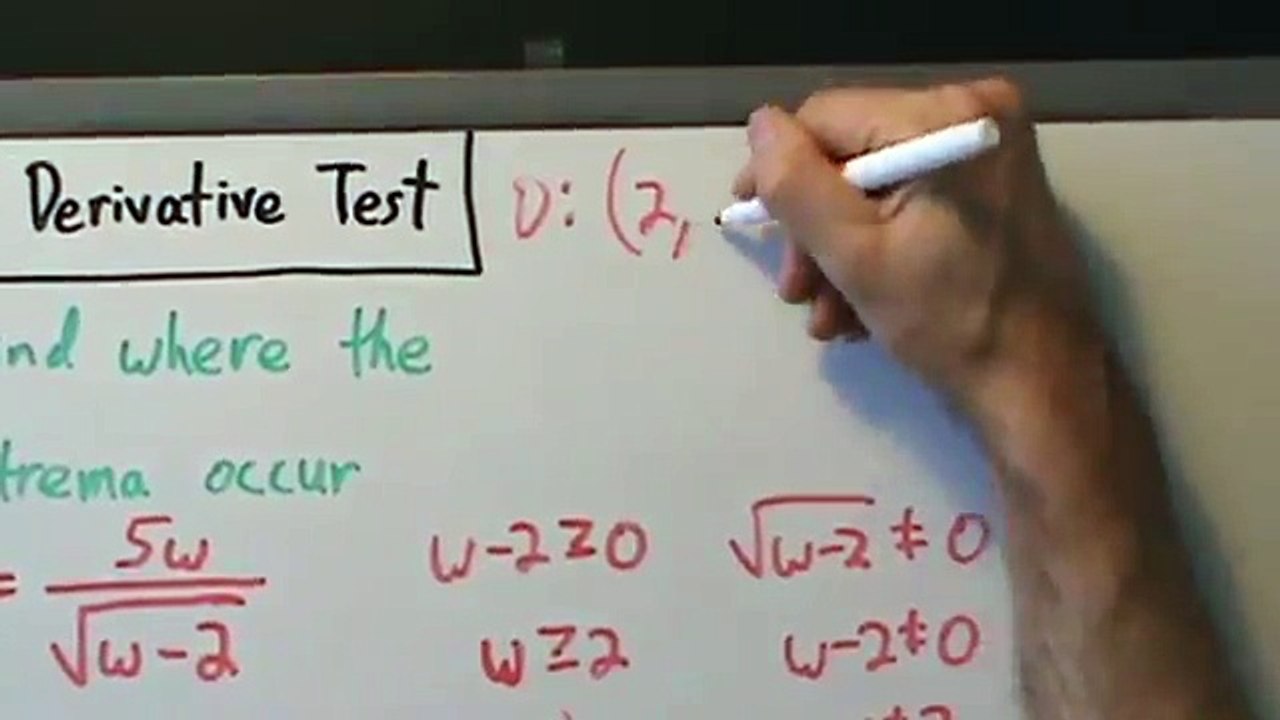 Derivative Test D: (2,
nd where the
trema occur
= 5w / √w-2
w-2≥0 √w-2 ≠ 0
w≥2 w-2≠0